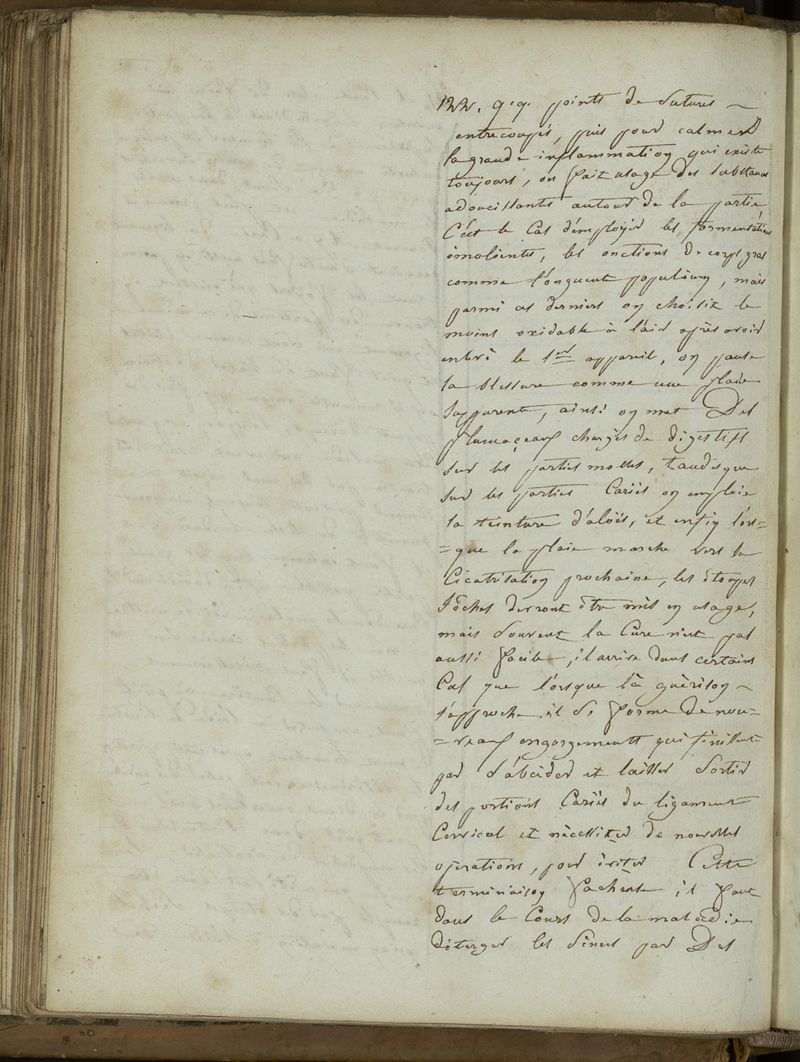 122. q.q. points de Sutures ~
entrecoupés, puis pour calmer
la grande inflammation qui existe
toujours, on fait usage des substances
adoucissantes autour de la partie
C'est le Cas d'employer les formentations
émolientes, les onctions de corps gras
comme l'onguent populéum, mais
parmi ces derniers on choisit le
moins oxidable à l'air après avoir
enlevé le 1er appareil, on panse
la blessure comme une plaie
Supparente, ainsi on met Des
plumaçeaux chargés de digestifs
sur les parties molles, tandis que
sur les parties Cariés on emploie
la teinture d'aloës, et enfin lors=
=que la plaie marche vers la
Cicatrisation prochaine, les étoupes
Sèches devront être mis en usage,
mais Souvent la Cure n'est pas
aussi facile, il arrive dans certains
Cas que lorsque la guèrison ~
s'approche il se forme de nou=
=veaux engorgements qui finissent
par S'abcéder et laisser Sortir
des portions Cariés du ligament
Cervical et nècessiter de nouvelles
opérations, pour èviter Cette
terminaison facheuse il faut
dans le Cours de la maladie
déterger les Sinus par Des